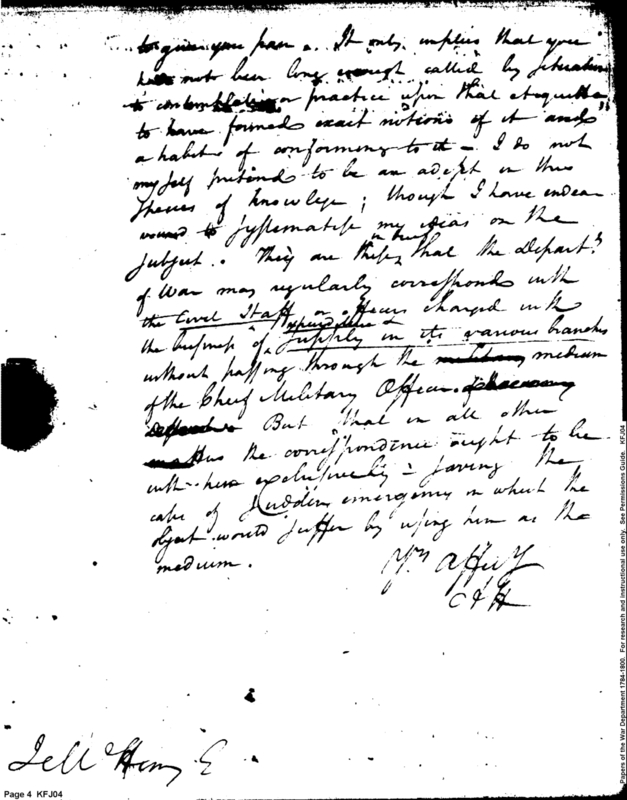 to given you pain. It only implies that you
have not been long enough called by situation
to contemplate or practice upon that etiquette
to have formed exact notions of it and
a habit of conforming to it – I do not
myself pretend to be an adept in this
species of knowlege; though I have endea
voured to systematise my ideas on the
subject. They are these, in brief, that the Departt.
of War may regularly correspond with
the Civil Staff or officers charged with
the business of expenditure & supply in its various branches
without passing through the medium
of the Chief Military Officer.
But that in all other
matters the correspondence ought to be
with him exclusively – saving the
case of sudden emergency in which the
object would suffer by using him as the
medium.
Yrs Affecly
A H
Js McHenry E
Page 4 KFJ04
Papers of the War Department 1784-1800. For research and instructional use only. See Permissions Guide. KFJ04